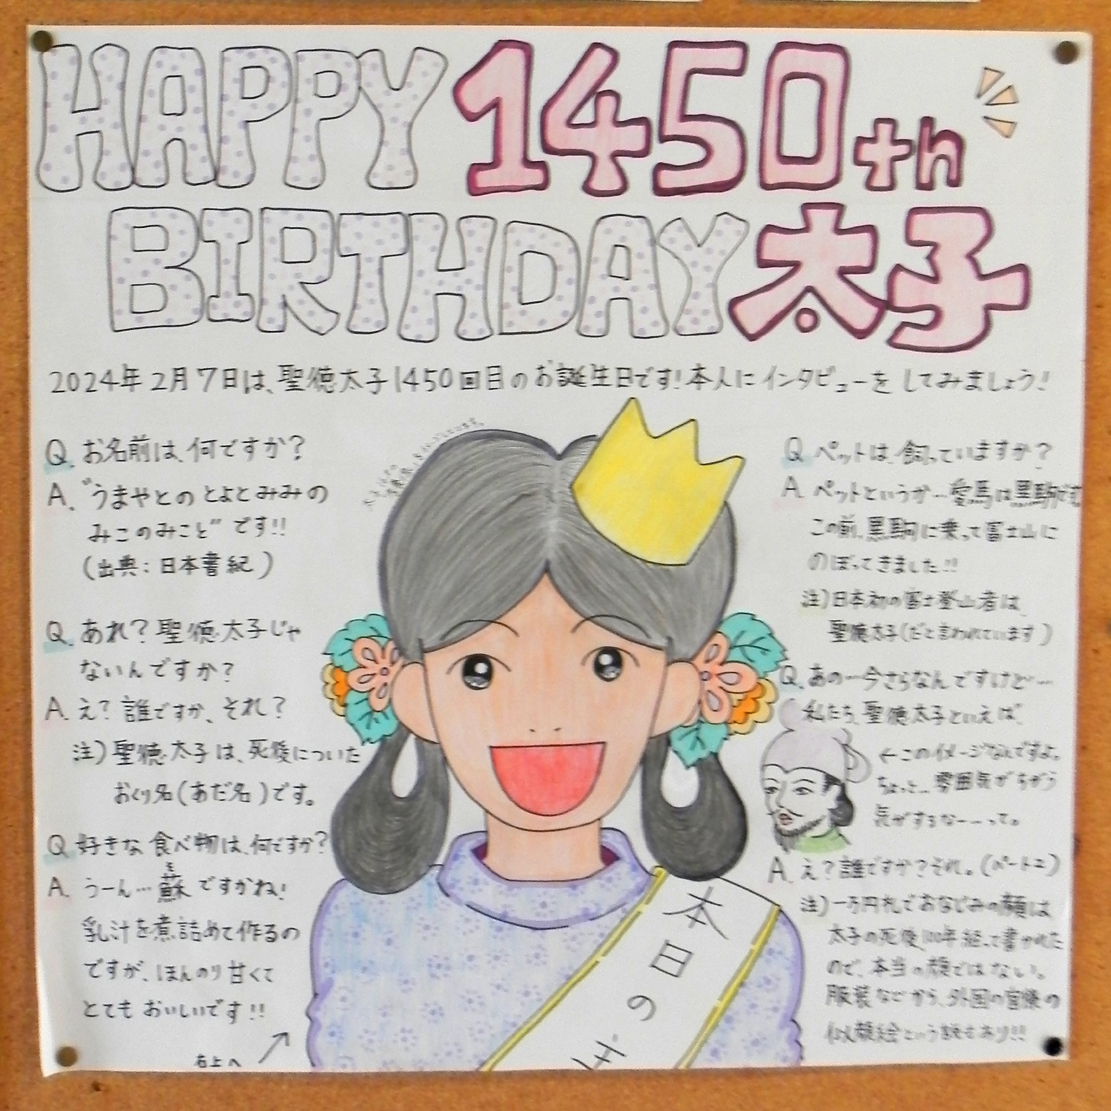 HAPPY 1450th
BIRTHDAY 太子
2024年2月7日は、聖徳太子1450回目のお誕生日です!本人にインタビューをしてみましょう!
Q. お名前は、何ですか?
A. "うまやとの とよとみみの
みこのみこと" です!!
(出典:日本書紀)
Q. あれ?聖徳太子じゃ
ないんですか?
A. え?誰ですか、それ?
注)聖徳太子は、死後についた
おくり名(あだ名)です。
Q. 好きな食べ物は、何ですか?
A. うーん…蘇ですかね!
乳汁を煮詰めて作るの
ですが、ほんのり甘くて
とてもおいしいです!!
右上へ
Q. ペットは、飼っていますか?
A. ペットというか…愛馬は黒駒です
この前、黒駒に乗って富士山に
のぼってきました!!
注)日本初の富士登山者は、
聖徳太子(だと言われています)
Q. あの…今さらなんですけど…
私たち、聖徳太子といえば、
←このイメージなんですよ。
ちょっと…雰囲気がちがう
気がするなーーって。
A. え?誰ですか?それ。(パート2)
注)一万円札でおなじみの顔は
太子の死後、100年経って書かれた
ので、本当の顔ではない。
服装などから、外国の官僚の
似顔絵という説もあり!!
本日の主